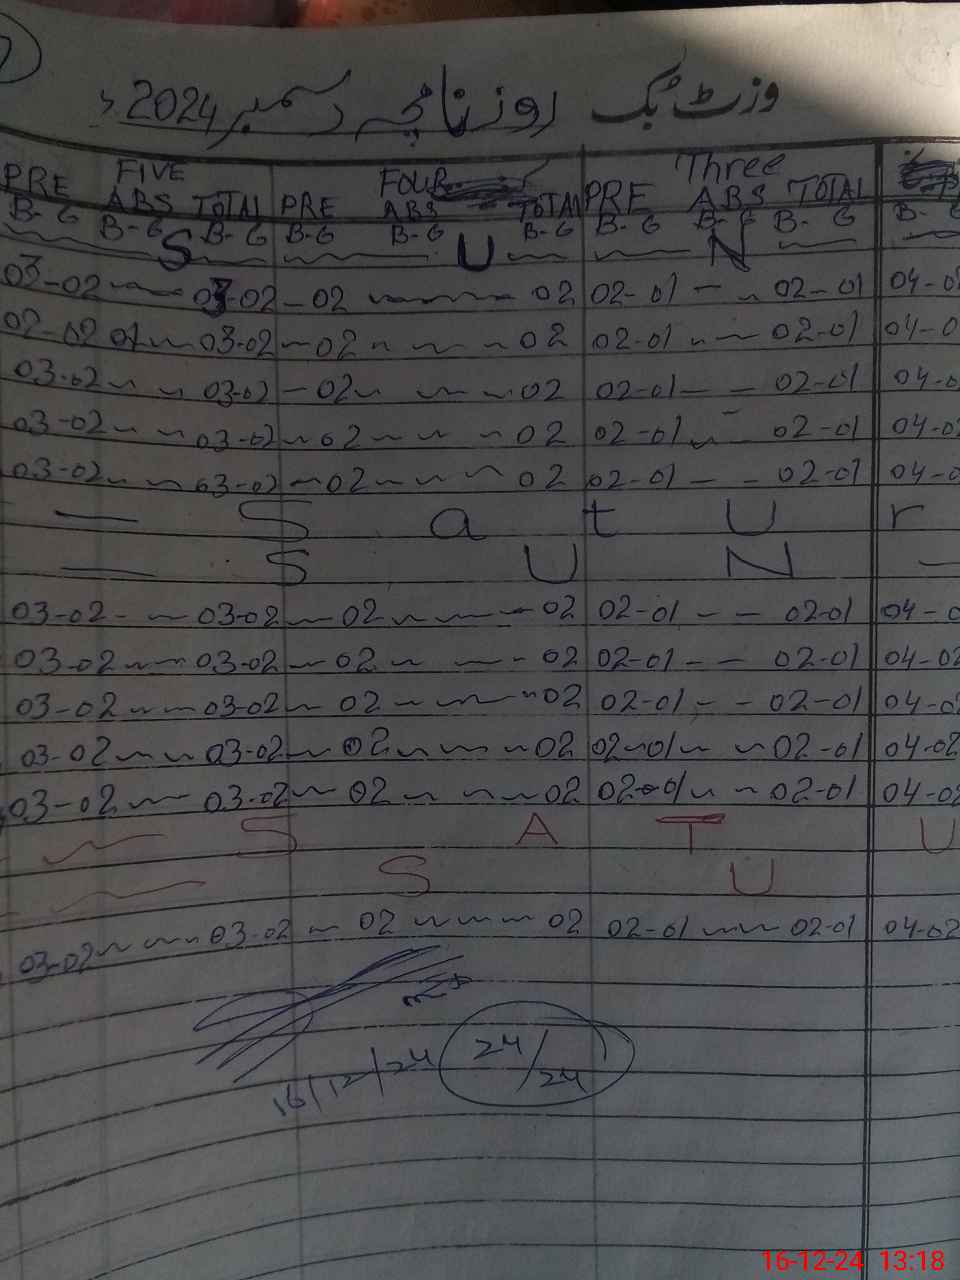 وزٹ بک روزنامچہ دسمبر 2024ء
FIVE FOUR Three
PRE ABS TOTAL PRE ABS TOTAL PRE ABS TOTAL
B-G B-G B-G B-G B-G B-G B-G B-G B-G B-
S U N
03-02 — 03-02 -02 — 02 02-01 — 02-01 04-0
02-02 01 — 03-02 -02 — 02 02-01 — 02-01 04-0
03-02 — 03-02 -02 — 02 02-01 — 02-01 04-0
03-02 — 03-02 -02 — 02 02-01 — 02-01 04-02
03-02 — 03-02 -02 — 02 02-01 — 02-01 04-0
— S a t U r
— S U N —
03-02 — 03-02 -02 — 02 02-01 — 02-01 04-0
03-02 — 03-02 -02 — 02 02-01 — 02-01 04-02
03-02 — 03-02 -02 — 02 02-01 — 02-01 04-02
03-02 — 03-02 -02 — 02 02-01 — 02-01 04-02
03-02 — 03-02 -02 — 02 02-01 — 02-01 04-02
— S A T U
— S U
03-02 — 03-02 -02 — 02 02-01 — 02-01 04-02
16/12/24 24/24
16-12-24 13:18